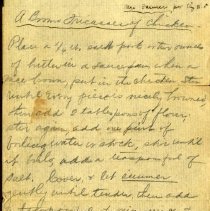 Mrs Farmer
A Brown Fricassee of Chicken
Place a 1/4 lb. salt pork or two ounces
of butter in a saucepan when a
nice brown, put in the chicken
until every piece is nicely browned,
then add 2 tablespoonfuls flour,
stir again, add one pint of
boiling water or stock, stir until
it boils, add a teaspoonful of
salt, cover, & let simmer
gently until tender, then add